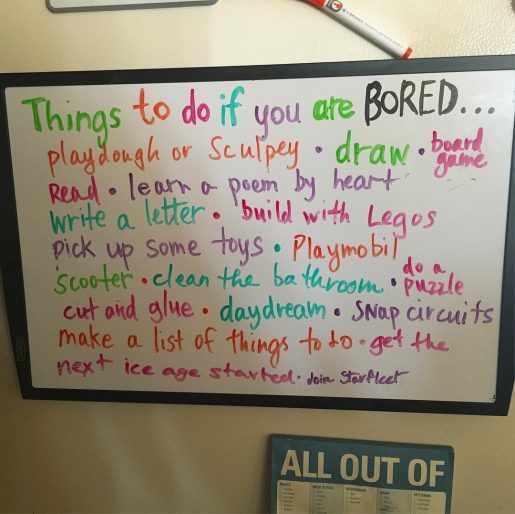 Things to do if you are BORED...
playdough or Sculpey • draw • board game
Read • learn a poem by heart
write a letter • build with Legos
pick up some toys • Playmobil
scooter • clean the bathroom • do a puzzle
cut and glue • daydream • Snap circuits
make a list of things to to • get the
next ice age started • Join Starfleet
ALL OUT OF